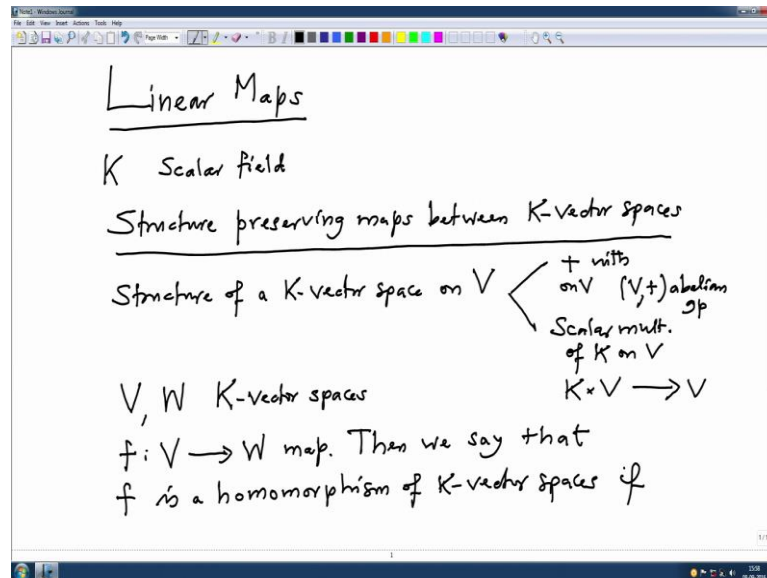 Note1 - Windows Journal
File Edit View Insert Actions Tools Help
Page Width
Linear Maps
K Scalar field
Structure preserving maps between K-vector spaces
Structure of a K-vector space on V
+ with
on V (V,+) abelian
gp
Scalar mult.
of K on V
K × V → V
V, W K-vector spaces
f : V → W map. Then we say that
f is a homomorphism of K-vector spaces if
1/1
1
15:58